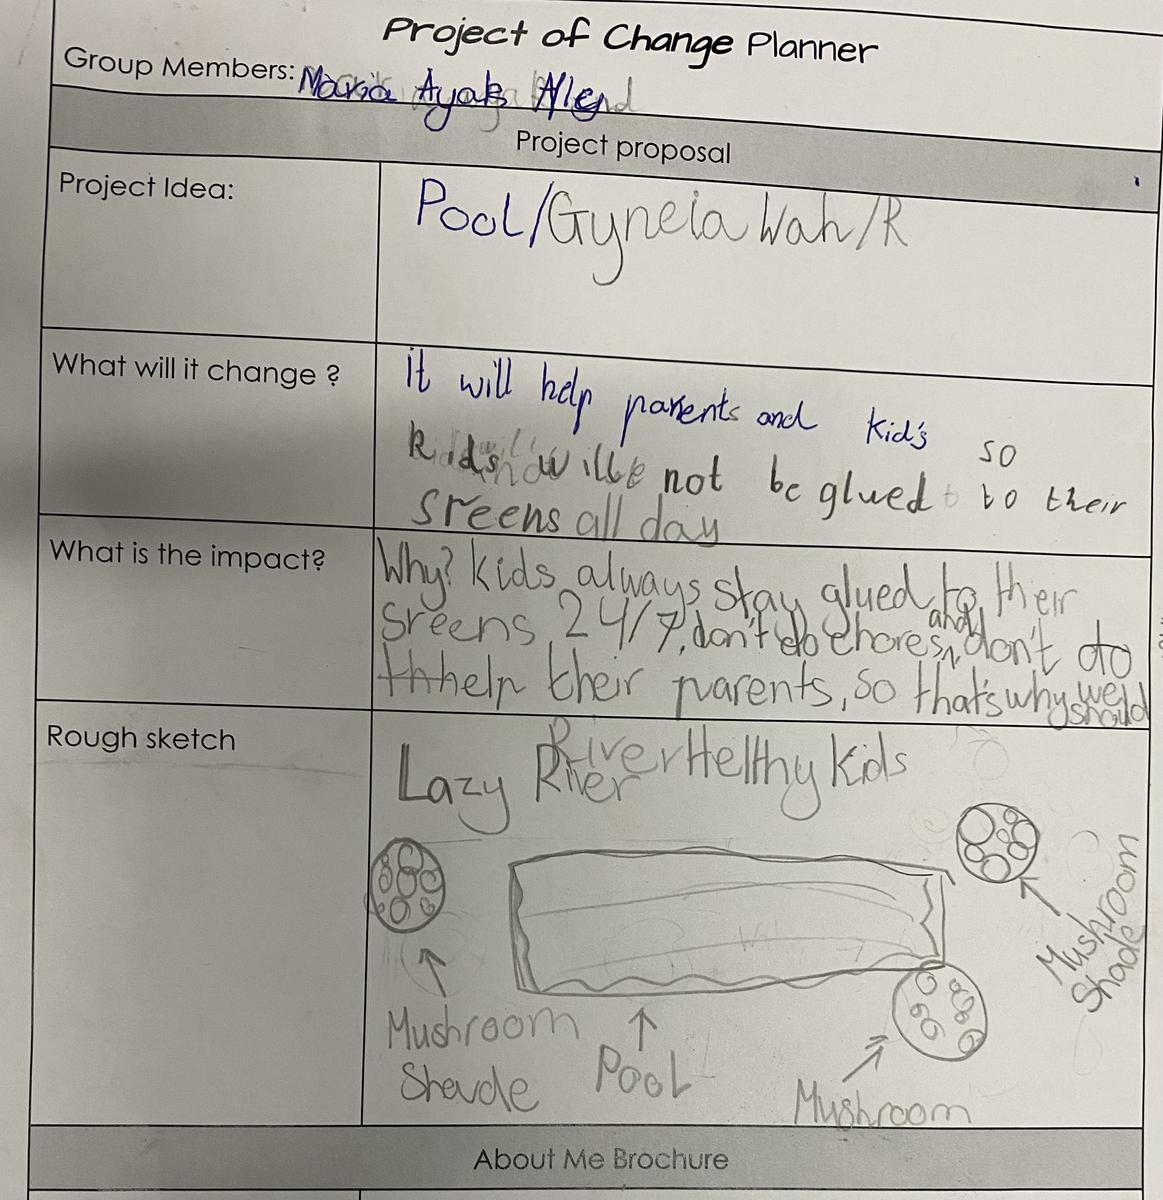 Project of Change Planner
Group Members: Maria Ayak
Project proposal
Project Idea:
Pool/Gyneia Wah/R
What will it change ?
it will help parents and kid's so
kids will not be glued to their
sreens all day
What is the impact?
Why? kids always stay glued to their
sreens 24/7, don't do chores and don't do
help their parents, so that's why we
should
Rough sketch
River Helthy kids
Lazy River
Mushroom
Shade
Mushroom
Shade
Pool
Mushroom
About Me Brochure